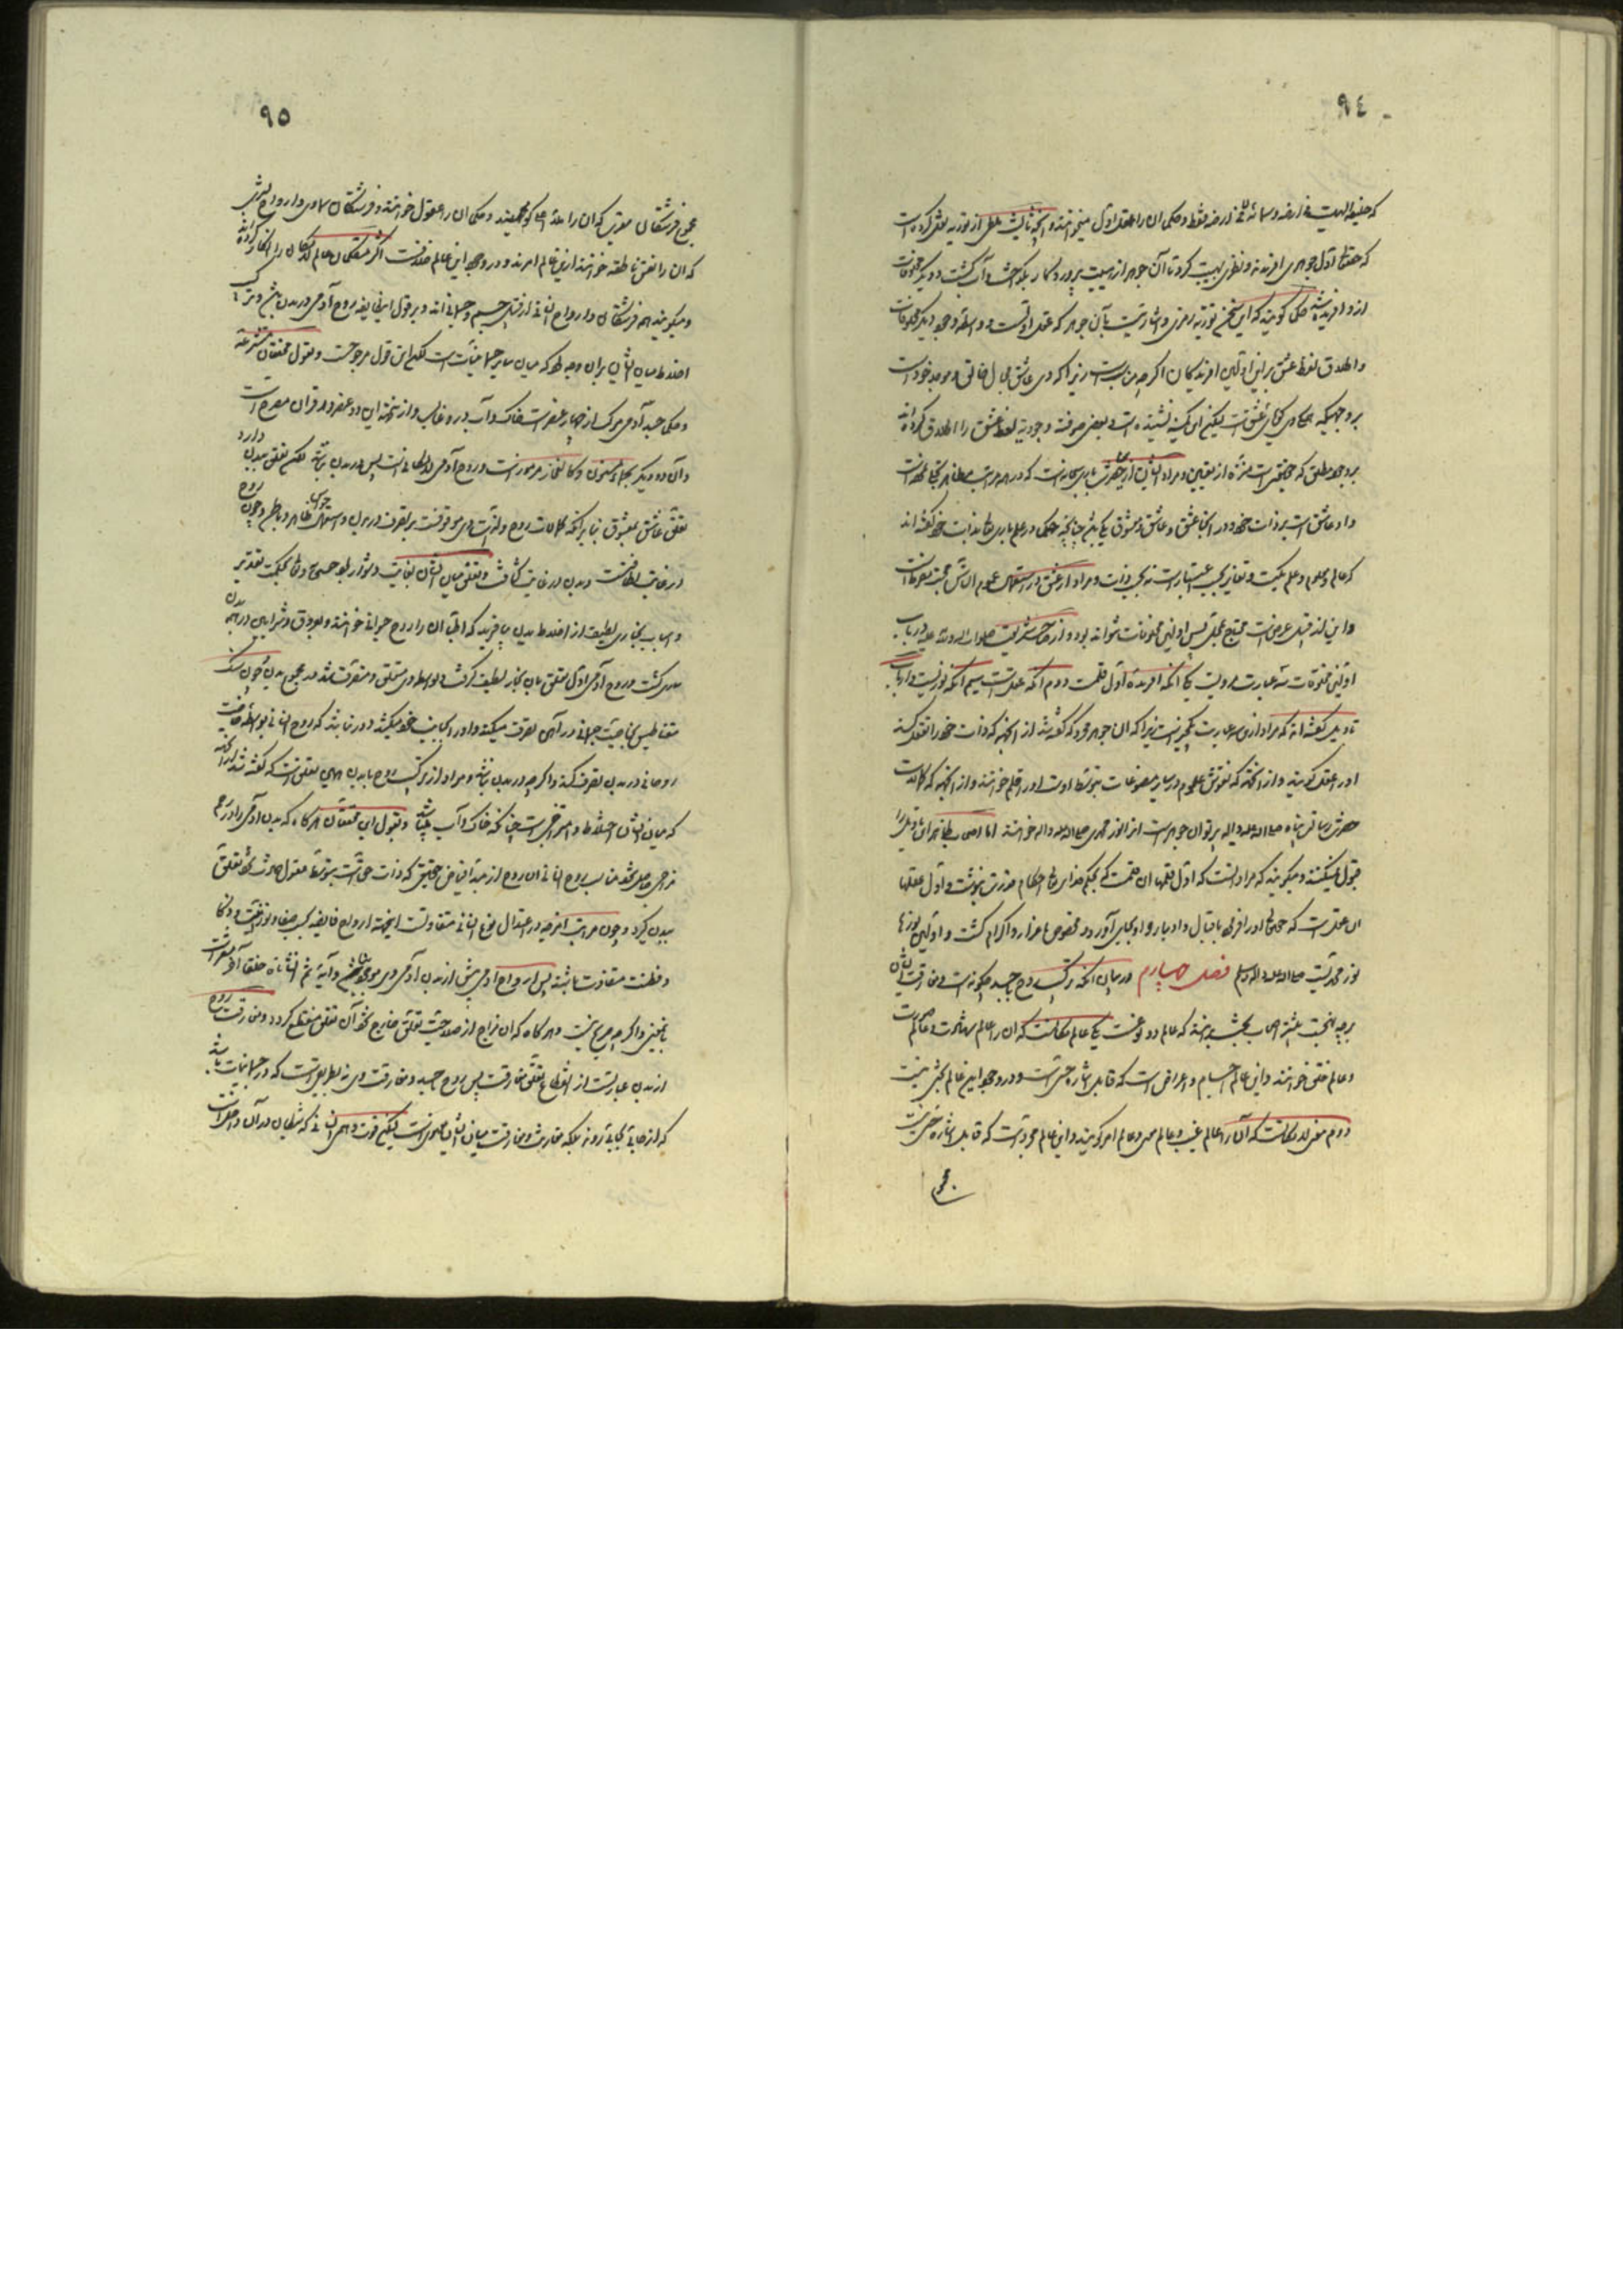 ٩٤
که خلیفه الهیت فی ارضه و سمائه نه فی ارضه فقط و حکما آن را عقل اول میخوانند و آنچه ثالیث ملطی از توریه نقل کرده است
که حقتعالی اول جوهری افرید و نظری بهیبت کرد تا آن جوهر از هیبت پروردگار بگداخت و آب گشت و دیگر مخلوقات
از و افریده شد حکما گویند که این سخن توریه رمزی و اشارتیست بآن جوهر که عقل اولست و واسطه وجود دیگر مخلوقات
و اطلاق لفظ عشق بر این اولین افریدگان اگرچه مناسب است زیرا که وی عاشق جمال خالق و موجد خود است
بر وجهیکه همگی وی گویای عشق است لیکن این کس نشنیده است و بعضی صوفیه وجودیه لفظ عشق را اطلاق کرده اند
بر وجود مطلق که حقیقتی است منزه از تعیین و مراد ایشان از آن حضرت باری سبحانه است که در همه مراتب مظاهر تجلی نموده است
و او عاشق است بر ذات خود و در اینجا عشق و عاشق و معشوق یکی باشد چنانچه حکما در علم باری تعالی بذات خود گفته اند
که عالم و معلوم و علم یکیست و تغایر بحسب اعتبار است نه بحسب ذات و مراد از عشق در استعمال عموم الناس محبت مفرط است
و این از قبیل عرض است محتاج بمحل پس اولین مخلوقات نتواند بود و از صاحب شریعت صلوات الله و سلامه علیه در باب
اولین مخلوقات سه عبارت مرویست یکی آنکه افریده اول قلمست دوم آنکه عقل است سیم آنکه نور نبیست و ارباب
تاویل گفته اند که مراد ازین سه عبارت یکچیز است زیرا که آن جوهر مجرد که گفته شد از آنجهة که ذات خود را تعقل کند
او را عقل گویند و از آنجهة که نقوش علوم در سایر مصنوعات بتوسط اوست او را قلم خوانند و از آنجهة که کمالات
حضرت رسالت پناه صلی الله علیه و اله پرتو آن جوهر است انرا نور محمدی صلی الله علیه و اله خوانند اما اصحاب ظاهر این تاویل را
قبول نمیکنند و میگویند که مراد آنست که اول قلمها آن قلمست که بحکم خدای تعالی احکام قدرت بنوشت و اول عقلها
آن عقل است که حقتعالی او را فرمود باقبال و ادبار و او بجای آورد و مخصوص باعزاز و اکرام گشت و اولین نورها
نور محمدیست صلی الله علیه و اله و سلم فصل چهارم در بیان آنکه ترکیب روح با جسد چگونه است و مفارقت ایشان
بر چه نهجست عشیره اصحاب کشف بر آنند که عالم دو نوعست یکی عالم ملکست که آن را عالم شهادت و عالم صورت
و عالم خلق خوانند و این عالم اجسام و اعراض است که قابل اشاره حسّی است و در وجود این عالم کسی را شک نیست
دوم مغز ملکوتست که آن را عالم غیب و عالم معنی و عالم امر گویند و این عالم مجردات است که قابل اشاره حسّی نیست
مجموع
٩٥
مجموع فرشتگان مقرب که آن را ملاء اعلی گویند و حکما آن را عقول خوانند و فرشتگان سماوی و ارواح بشری
که آن را نفس ناطقه خوانند ازین عالم امرند و در وجود این عالم خلافست اکثر متکلمان عالم ملکوت را انکار کرده اند
و میگویند همه فرشتگان و ارواح انسانی از قبیل جسم و جسمانی اند و بر قول این طایفه روح آدمی در بدن باشد و ترکیب و
اختلاط میان ایشان بر آن وجه بود که میان سایر جسمانیات است لکن این قول مرجوحست و بقول محققان متشرعه
و حکما جسد آدمی مرکب از چهار عنصر است خاک و آب در و غالب و از نتیجه این دو عنصر در قران مصرح است
و آن دو دیگر بحماء مسنون و کالفخار مرموز است و روح آدمی ملکوتی است پس در بدن نباشد لکن تعلق ببدن دارد
تعلق عاشق بمعشوق بنابر آنکه کمالات روح و لذات وی موقوفست بر تصرف در بدن و استعمال حواس ظاهر و باطن و چون روح
در غایت لطافتست و بدن در غایت کثافت و تعلق میان ایشان بغایت دشوار بود حقسبحانه و تعالی بحکمت تقدیر
و اسباب بخاری لطیف از اخلاط بدن بیافرید که اطبا آن را روح حیوانی خوانند و بعروق و شرایین در همه بدن
ساری گشت و روح آدمی اول متعلق بآن بخار لطیف گرفت و بواسطه وی متعلق و متصرف شد در مجموع بدن و چون سنگ
مقناطیس بخاصیت جسمانی در آهن تصرف میکند و او را بجانب خود میکشد دور نباشد که روح انسانی بواسطه خاصیت
روحانی در بدن تصرف کند و اگرچه در بدن نباشد و مراد از ترکیب روح با بدن همین تعلق است که گفته شد نه آنکه
که میان ایشان اختلاط و امتزاجی است چنانکه خاک و آب باشد و بقول این محققان هرگاه که بدن آدمی را در رحم
مزاجی حاصل شد مناسب روح انسانی آن روح از مبداء فیاض حقیقی که ذات حق است بتوسط عقول حادث شود و تعلق
ببدن گیرد و چون مراتب امزجه در اعتدال نوع انسانی متفاوتست ازینجهة ارواح فایضه بحسب صفا و نورانیت و ذکا
و فطنت متفاوت باشند پس ارواح آدمی پیش از بدن آدمی وی موجود نباشد و آیه ثم انشاناه خلقا آخر مشعر است
باینمعنی و اگرچه صریح نیست و هر گاه که آن مزاج از صلاحیت تعلق خارج شود آن تعلق منقطع گردد و مفارقت روح
از بدن عبارتست از انقطاع تعلق مفارقت پس روح جسد و مفارقت وی نه بطریقی است که در جسمانیات باشد
که از جائی بجائی رود بلکه مقارنت و مفارقت میان ایشان معنوی است لیکن قوت وهمی انسانی که شیطان در آن داخل است